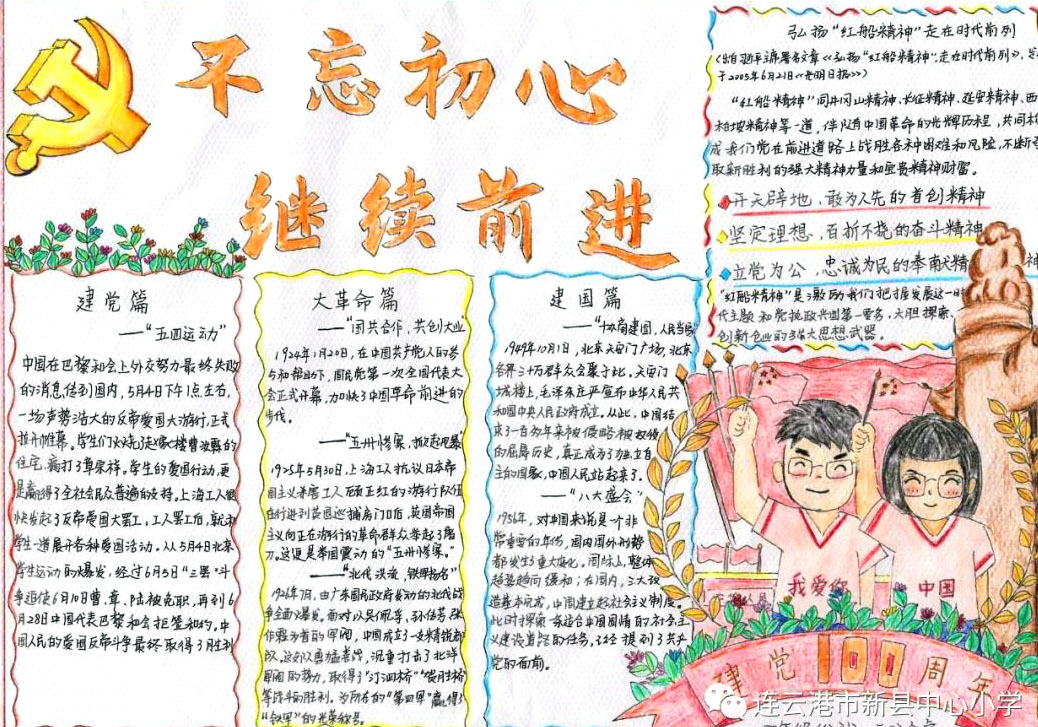 不忘初心
继续前进
弘扬“红船精神”走在时代前列
(出自习近平主席署名文章《弘扬“红船精神”走在时代前列》,
于2005年6月21日《光明日报》)
“红船精神”同井冈山精神、长征精神、延安精神、西
柏坡精神等一道,伴随中国革命的光辉历程,共同构
成我们党在前进道路上战胜各种困难和风险,不断夺
取新胜利的强大精神力量和宝贵精神财富。
开天辟地、敢为人先的首创精神
坚定理想、百折不挠的奋斗精神
立党为公、忠诚为民的奉献精神
“红船精神”是激励我们把握发展这一时
代主题和党执政兴国第一要务,大胆探索、
创新创业的强大思想武器。
建党篇
——“五四运动”
中国在巴黎和会上外交努力最终失败
的消息传到国内,5月4日下午1点左右,
一场声势浩大的反帝爱国大游行,正式
拉开帷幕。学生们火烧赵家楼曹汝霖的
住宅,痛打了章宗祥。学生的爱国行动,更
是赢得了全社会民众普遍的支持。上海工人很
快发起了反帝爱国大罢工,工人罢工后,就和
学生一道展开各种爱国活动。从5月4日北京
学生运动的爆发,经过6月5日“三罢”斗
争迫使6月10日曹、章、陆被免职,再到6
月28日中国代表巴黎和会拒签和约,中
国人民的爱国反帝斗争最终取得了胜利
大革命篇
——“国共合作,共创大业”
1924年1月20,在中国共产党人的参
与和帮助下,国民党第一次全国代表大
会正式开幕,加快了中国革命前进的
步伐。
——“五卅惨案,掀起风暴”
1925年5月30日,上海工人抗议日本帝
国主义杀害工人顾正红的游行队伍
在行进到英国巡捕房门口后,英国帝国
主义向正在游行的革命群众举起了屠
刀。这便是举国震动的“五卅惨案。”
——“北伐洪流,铁军扬名”
1926年7月,由广东国民政府发动的北伐战
争全面爆发。面对以吴佩孚、孙传芳、张
作霖为首的军阀,中国成立了一支精锐部
队。这部队勇猛善战,沉重打击了北洋
军阀的势力,取得了“汀泗桥”“贺胜桥”
等战斗的胜利。为所在的“第四军”赢得了
“铁军”的光荣称号。
建国篇
——“协商建国,人民当家”
1949年10月1日,北京天安门广场,北京
各界三十万群众会聚于此。天安门
城楼上,毛泽东庄严宣布中华人民共
和国中央人民政府成立。从此,中国结
束了一百多年来被侵略被奴役
的屈辱历史,真正成为了独立自
主的国家,中国人民站起来了。
——“八大盛会”
1956年,对中国来说是个非
常重要的年份,国内国外形势
都发生重大变化。国际上,整体
趋势趋向缓和;在国内,三大改
造基本完成,中国建立起社会主义制度。
此时探索一条适合中国国情的社会主
义建设道路的任务,已经提到了共产
党的面前。
我爱你
中国
建党100周年
连云港市新县中心小学